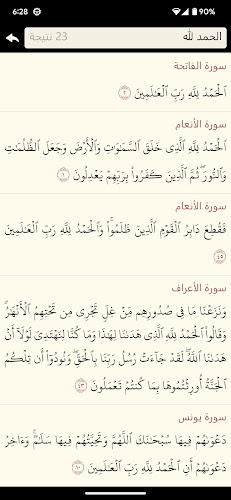 6:28
90%
الحمد لله
23 نتيجة
سورة الفاتحة
ٱلْحَمْدُ لِلَّهِ رَبِّ ٱلْعَٰلَمِينَ ٢
سورة الأنعام
ٱلْحَمْدُ لِلَّهِ ٱلَّذِى خَلَقَ ٱلسَّمَٰوَٰتِ وَٱلْأَرْضَ وَجَعَلَ ٱلظُّلُمَٰتِ
وَٱلنُّورَ ۖ ثُمَّ ٱلَّذِينَ كَفَرُوا۟ بِرَبِّهِمْ يَعْدِلُونَ ١
سورة الأنعام
فَقُطِعَ دَابِرُ ٱلْقَوْمِ ٱلَّذِينَ ظَلَمُوا۟ ۚ وَٱلْحَمْدُ لِلَّهِ رَبِّ ٱلْعَٰلَمِينَ
٤٥
سورة الأعراف
وَنَزَعْنَا مَا فِى صُدُورِهِم مِّنْ غِلٍّ تَجْرِى مِن تَحْتِهِمُ ٱلْأَنْهَٰرُ ۖ
وَقَالُوا۟ ٱلْحَمْدُ لِلَّهِ ٱلَّذِى هَدَىٰنَا لِهَٰذَا وَمَا كُنَّا لِنَهْتَدِىَ لَوْلَآ أَنْ
هَدَىٰنَا ٱللَّهُ ۖ لَقَدْ جَآءَتْ رُسُلُ رَبِّنَا بِٱلْحَقِّ ۖ وَنُودُوٓا۟ أَن تِلْكُمُ
ٱلْجَنَّةُ أُورِثْتُمُوهَا بِمَا كُنتُمْ تَعْمَلُونَ ٤٣
سورة يونس
دَعْوَىٰهُمْ فِيهَا سُبْحَٰنَكَ ٱللَّهُمَّ وَتَحِيَّتُهُمْ فِيهَا سَلَٰمٌ ۚ وَءَاخِرُ
دَعْوَىٰهُمْ أَنِ ٱلْحَمْدُ لِلَّهِ رَبِّ ٱلْعَٰلَمِينَ ١٠